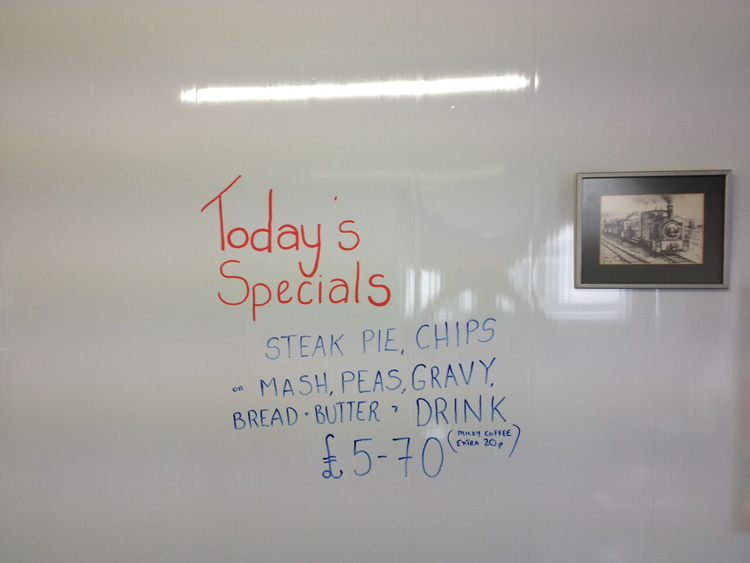 Today's
Specials
STEAK PIE, CHIPS
OR MASH, PEAS, GRAVY,
BREAD + BUTTER + DRINK
£5-70 (MILKY COFFEE
EXTRA 20p)